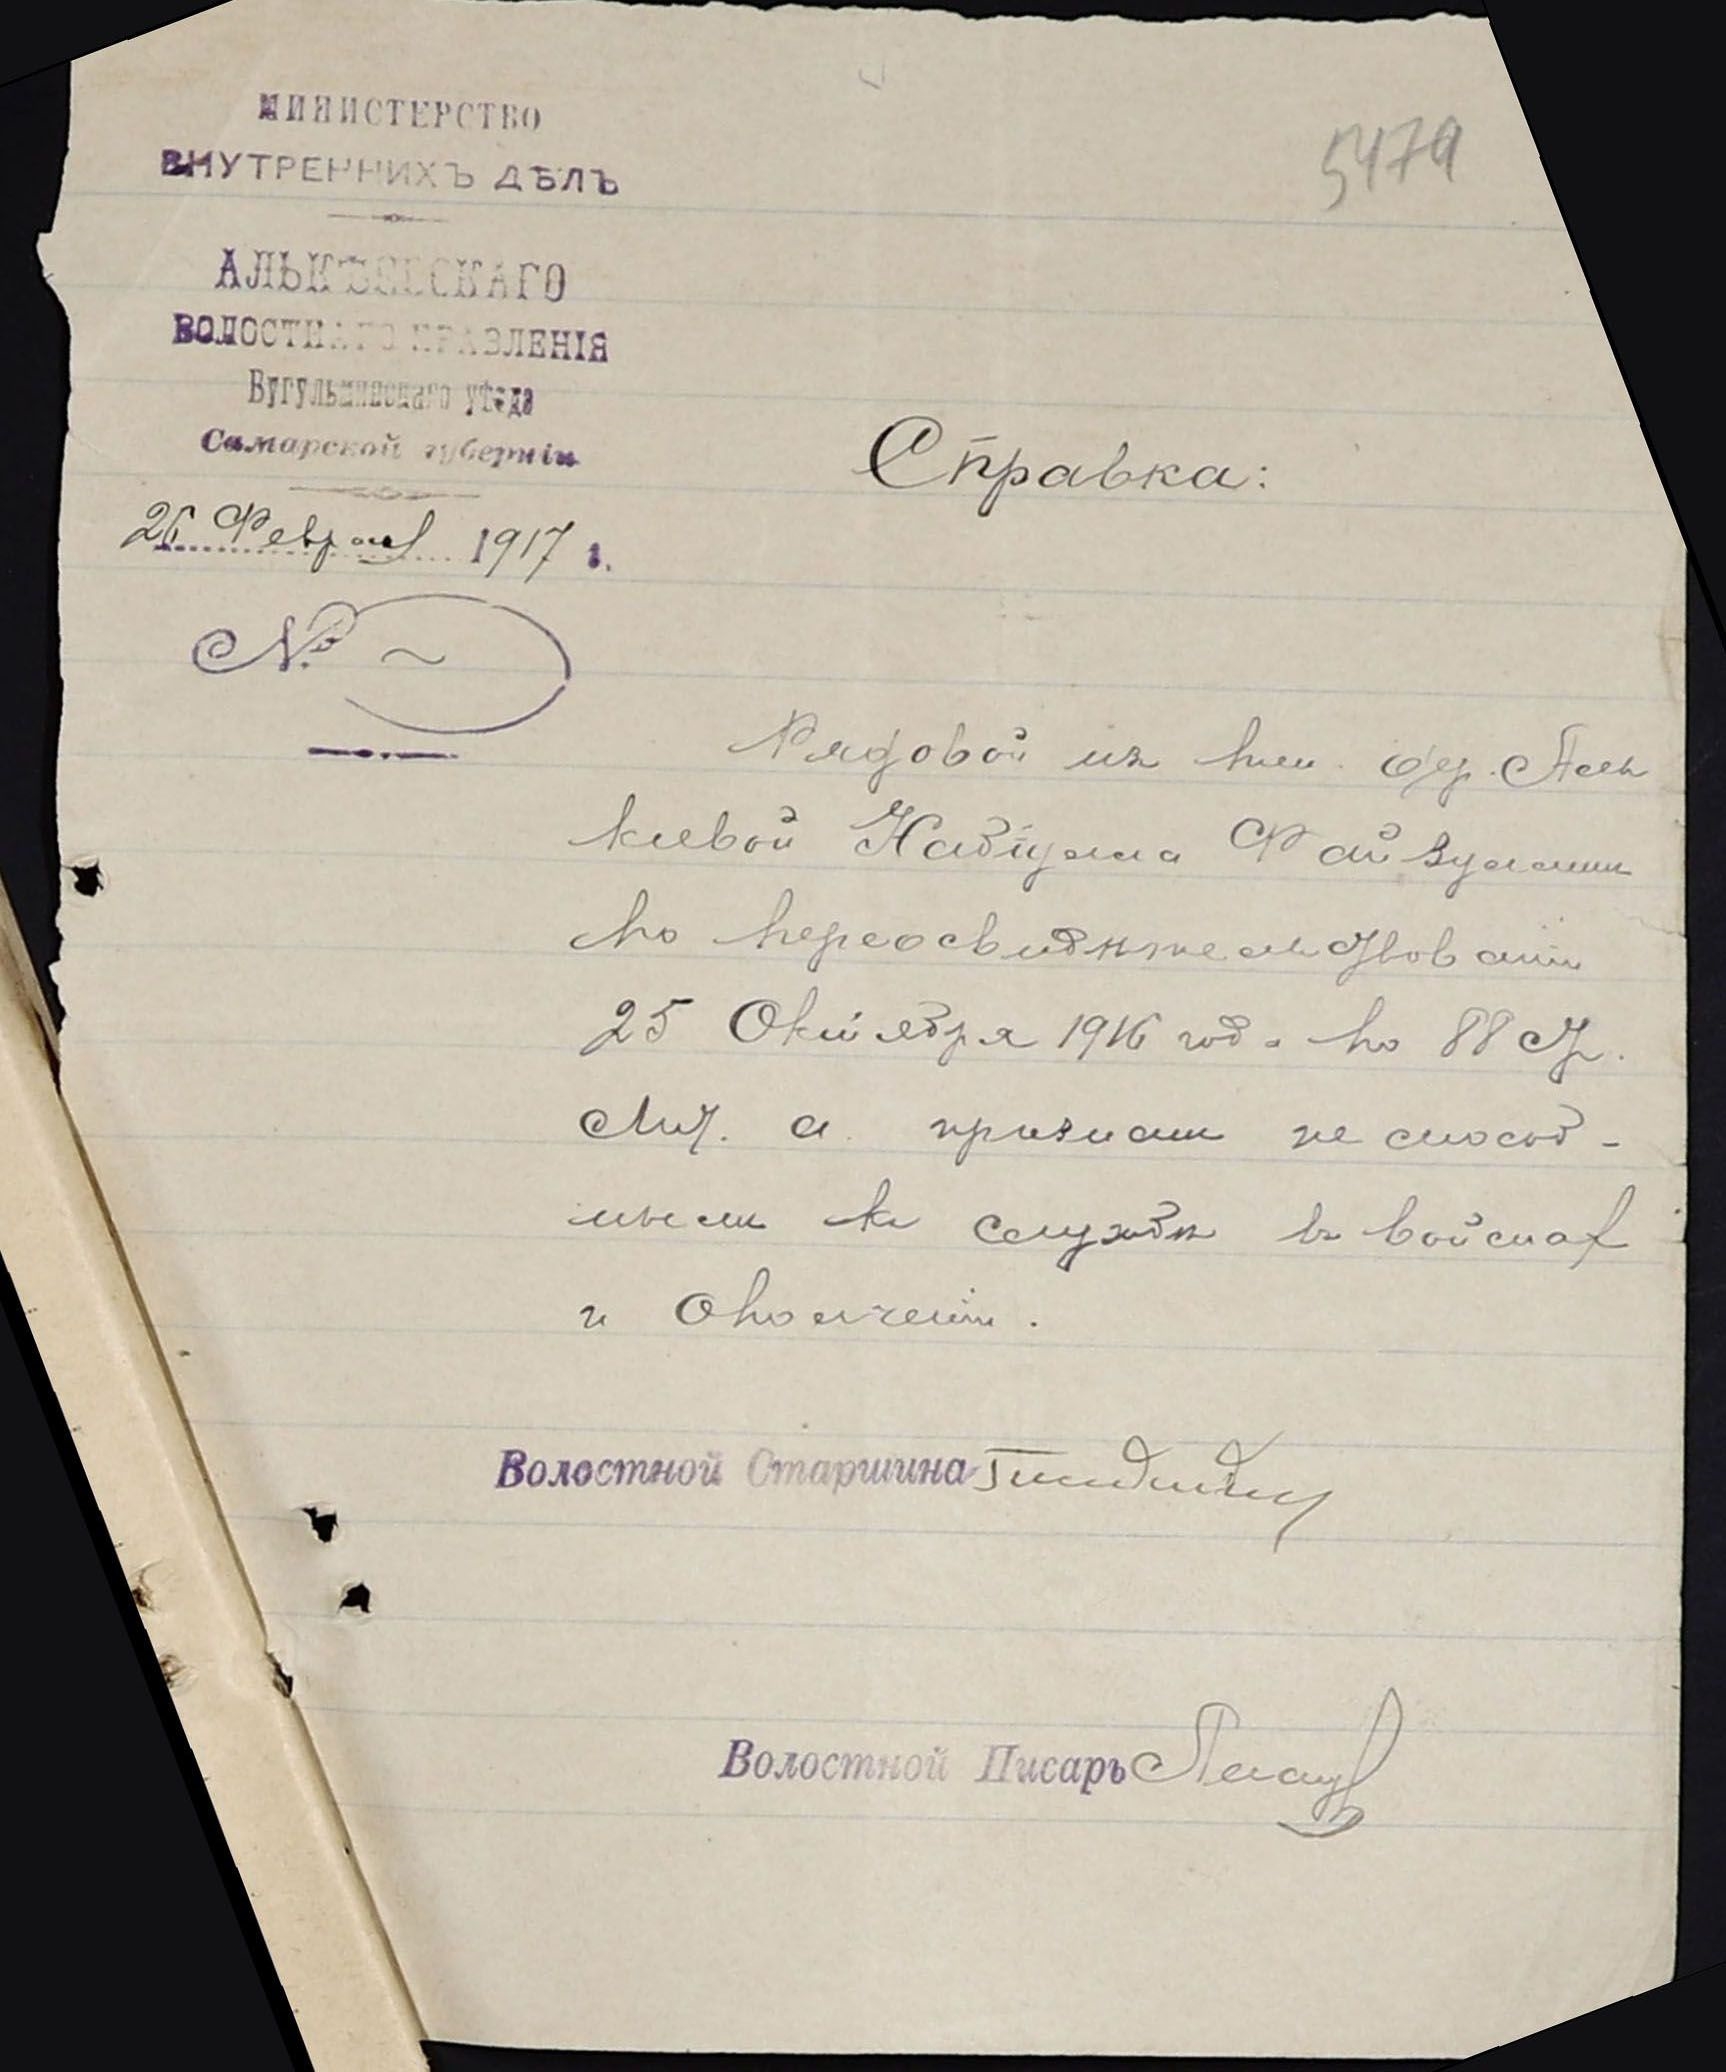 МИНИСТЕРСТВО
ВНУТРЕННИХЪ ДѢЛЪ
АЛЬКѢЕВСКАГО
ВОЛОСТНАГО ПРАВЛЕНІЯ
Бугульминскаго уѣзда
Самарской губерніи
26 Февраля 1917 г.
№ ~
5479
Справка:
Рядовой изъ дер. Аль
кѣевой Набіулла Файзуллинъ
по переосвидѣтельствованіи
25 Октября 1916 года по 88 ст.
Лит. а признанъ не способ-
нымъ къ службѣ въ войскахъ
и Ополченіи.
Волостной Старшина
Волостной Писарь